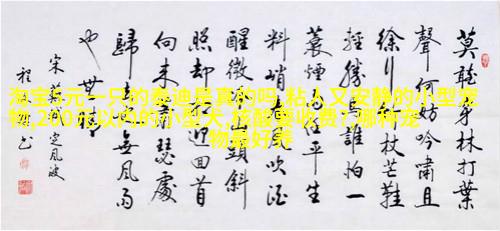 淘宝5元一只的泰迪是真的吗,粘人又安静的小型宠
物,200元以内的小型犬,核酸要收费?,哪种宠
物最好养
莫聽穿林打葉
聲何妨吟嘯且
徐行竹杖芒鞋
輕勝馬誰怕一
蓑煙雨任平生
料峭春風吹酒
醒微冷山頭斜
照却相迎回首
向來蕭瑟處
歸去也無風雨
也無晴
宋蘇軾定風波